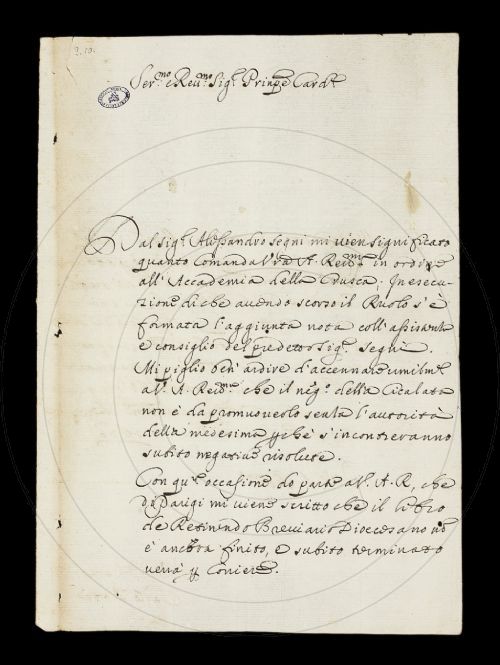 9. 10.
Ser.mo e Reu.mo Sig.r Prinpe Card.l
Dal sig.r Alessandro segni mi vien significato
quanto comanda V'ra A. Reu.ma in ordine
all'Accademia della Crusca; In esecu-
zione di che auendo scorso il Ruolo s'è
formata l'aggiunta nota coll'assistenza
e consiglio del predetto Sig.r segni.
Mi piglio ben'ardire d'accennare umilme.
a V. A. Reu.ma che il neg.o della Cicalata
non è da promuouerlo senza l'autorità
della medesima pche s'incontreranno
subito negatiue risolute.
Con qu.a occasione do parte a V. A. R. che
di Parigi mi viene scritto che il libro
de Retinendo Breuiario Dioecesano nō
è ancora finito, e subito terminato
verrà p Coriere.